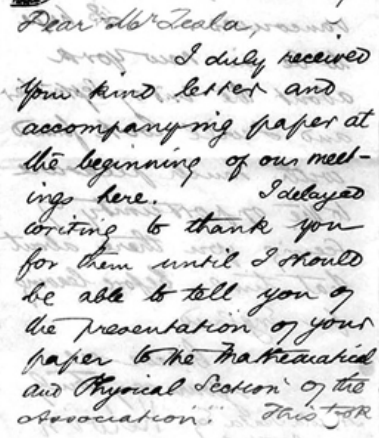 Dear Mr Tesla,
I duly received
your kind letter and
accompanying paper at
the beginning of our meet-
ings here. I delayed
writing to thank you
for them until I should
be able to tell you of
the presentation of your
paper to the Mathematical
and Physical Section of the
Association. This took